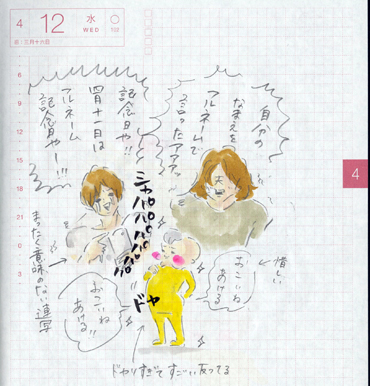 4 12 水 WED
旧:三月十六日
102
6
9
12
15
18
21
0
3
4
自分の
なまえを
フルネームで
言ったアアアッ
記念日や!!
四月十一日は
フルネーム
記念日やー!!!
まったく意味のない連写
惜しい
おこいね
あける
おこいね
あける!!
ドヤ
ドヤりすぎてすごい反ってる